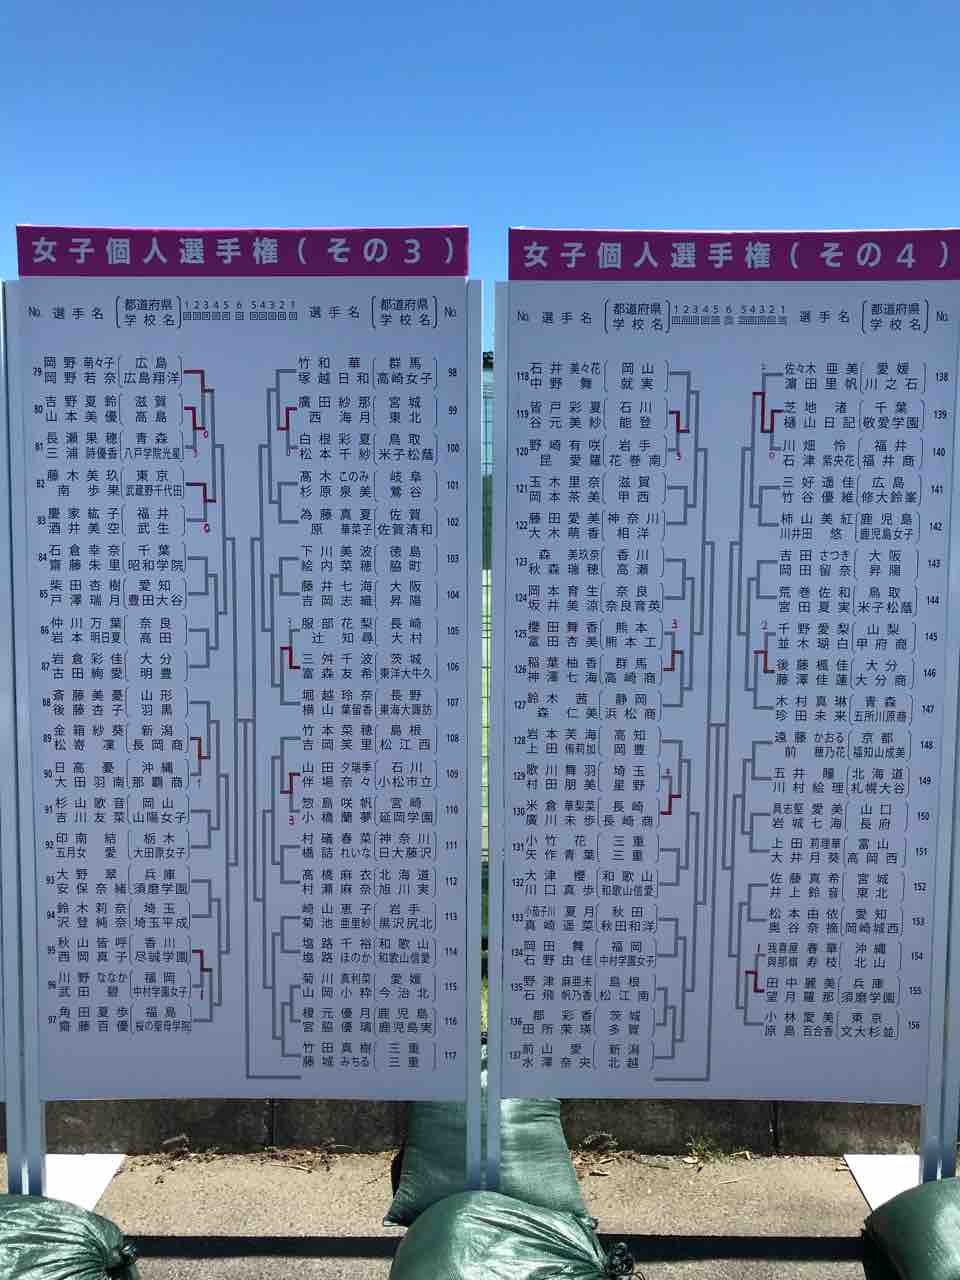 女子個人選手権(その3)
No. 選手名 (都道府県 学校名) 1回 2回 3回 4回 5回 6回 5回 4回 3回 2回 1回 選手名 (都道府県 学校名) No.
79 岡野萌々子 岡野若奈 (広島 広島翔洋)
80 吉野夏鈴 山本美優 (滋賀 高島)
81 長瀬果穂 三浦詩優香 (青森 八戸学院光星)
82 藤木美玖 南歩果 (東京 武蔵野千代田)
83 慶家紘子 酒井美空 (福井 武生)
84 石倉幸奈 齋藤朱里 (千葉 昭和学院)
85 柴田杏樹 戸澤瑞月 (愛知 豊田大谷)
86 仲川万葉 岩本明日夏 (奈良 高田)
87 岩倉彩佳 古田絢愛 (大分 明豊)
88 斎藤美憂 後藤杏子 (山形 羽黒)
89 金箱紗葵 松嵜凜 (新潟 長岡商)
90 日高憂 大田羽南 (沖縄 那覇商)
91 杉山歌音 吉川友菜 (岡山 山陽女子)
92 印南結 五月女愛 (栃木 大田原女子)
93 大野翠 安保奈緒 (兵庫 須磨学園)
94 鈴木莉奈 沢登純奈 (埼玉 埼玉平成)
95 秋山皆呼 西岡真子 (香川 尽誠学園)
96 川野ななか 武田碧 (福岡 中村学園女子)
97 角田夏歩 齋藤百優 (福島 桜の聖母学院)
竹和華 塚越日和 (群馬 高崎女子) 98
廣田紗那 西海月 (宮城 東北) 99
白根彩夏 松本千紗 (鳥取 米子松蔭) 100
髙木このみ 杉原泉美 (岐阜 鶯谷) 101
為藤真夏 原華菜子 (佐賀 佐賀清和) 102
下川美波 絵内菜穂 (徳島 脇町) 103
藤井七海 吉岡志織 (大阪 昇陽) 104
服部花梨 辻知尋 (長崎 大村) 105
三舛千波 富森友希 (茨城 東洋大牛久) 106
堀越玲奈 横山葉留香 (長野 東海大諏訪) 107
竹本菜穂 吉岡笑里 (島根 松江西) 108
山田夕瑞季 伴場奈々 (石川 小松市立) 109
惣島咲帆 小橋蘭夢 (宮崎 延岡学園) 110
村礒春菜 橋詰れいな (神奈川 日大藤沢) 111
髙橋麻衣 村瀬麻奈 (北海道 旭川実) 112
崎山恵子 菊池亜里紗 (岩手 黒沢尻北) 113
塩路千裕 塩路ほのか (和歌山 和歌山信愛) 114
菊川真利菜 山岡小粋 (愛媛 今治北) 115
榎元優月 宮脇優璃 (鹿児島 鹿児島実) 116
竹田真樹 藤城みちる (三重 三重) 117
女子個人選手権(その4)
No. 選手名 (都道府県 学校名) 1回 2回 3回 4回 5回 6回 5回 4回 3回 2回 1回 選手名 (都道府県 学校名) No.
118 石井美々花 中野舞 (岡山 就実)
119 皆戸彩夏 谷元美紗 (石川 能登)
120 野崎有咲 昆愛羅 (岩手 花巻南)
121 玉木里奈 岡本茶美 (滋賀 甲西)
122 藤田愛美 大木萌香 (神奈川 相洋)
123 森美玖奈 秋森瑞穂 (香川 高瀬)
124 岡本育生 坂井美涼 (奈良 奈良育英)
125 櫻田舞香 富田杏美 (熊本 熊本工)
126 稲葉柚香 神澤七海 (群馬 高崎商)
127 鈴木茜 森仁美 (静岡 浜松商)
128 岩本芙海 上田侑莉加 (高知 岡豊)
129 歌川舞羽 村田朋美 (埼玉 星野)
130 米倉華梨菜 廣川未歩 (長崎 長崎商)
131 小竹花 矢作青葉 (三重 三重)
132 大津櫻 川口真歩 (和歌山 和歌山信愛)
133 小茄子川夏月 真崎遥菜 (秋田 秋田和洋)
134 岡田舞 石野由佳 (福岡 中村学園女子)
135 野津麻亜未 石飛帆乃香 (島根 松江南)
136 郡彩香 田所茉瑛 (茨城 多賀)
137 前山愛 水澤奈央 (新潟 北越)
佐々木亜美 濵田里帆 (愛媛 川之石) 138
芝地渚 樋山日記 (千葉 敬愛学園) 139
川畑怜 石津紫央花 (福井 福井商) 140
三好遥佳 竹谷優維 (広島 修大鈴峯) 141
柿山美紅 川井田悠 (鹿児島 鹿児島女子) 142
吉田さつき 岡田留奈 (大阪 昇陽) 143
荒巻佐和 宮田夏実 (鳥取 米子松蔭) 144
千野愛梨 並木瑚白 (山梨 甲府商) 145
後藤楓佳 藤澤佳蓮 (大分 大分商) 146
木村真琳 珍田未来 (青森 五所川原商) 147
遠藤かおる 前穂乃花 (京都 福知山成美) 148
五井瞳 川村絵理 (北海道 札幌大谷) 149
具志堅愛美 岩城七海 (山口 長府) 150
上田莉理華 大井月葵 (富山 高岡西) 151
佐藤真希 井上鈴音 (宮城 東北) 152
松本由依 奥谷奈摘 (愛知 岡崎城西) 153
我喜屋春華 與那嶺寿枝 (沖縄 北山) 154
田中麗美 望月羅那 (兵庫 須磨学園) 155
小林愛美 原島百合香 (東京 文大杉並) 156